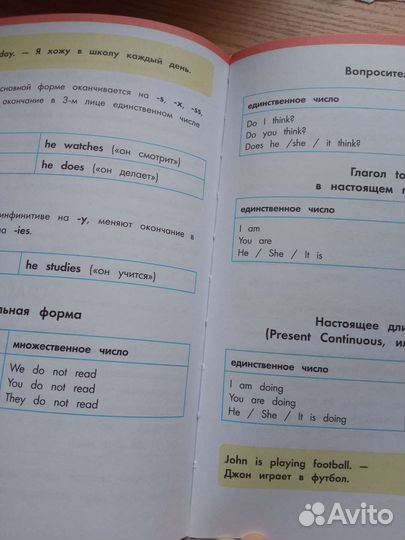 day. — Я хожу в школу каждый день.
основной форме оканчивается на -s, -x, -ss,
окончание в 3-м лице единственном числе
he watches («он смотрит»)
he does («он делает»)
инфинитиве на -y, меняют окончание в
на -ies.
he studies («он учится»)
льная форма
множественное число
We do not read
You do not read
They do not read
Вопросител
единственное число
Do I think?
Do you think?
Does he /she / it think?
Глагол to
в настоящем п
единственное число
I am
You are
He / She / It is
Настоящее дли
(Present Continuous, ил
единственное число
I am doing
You are doing
He / She / It is doing
John is playing football. —
Джон играет в футбол.
Avito